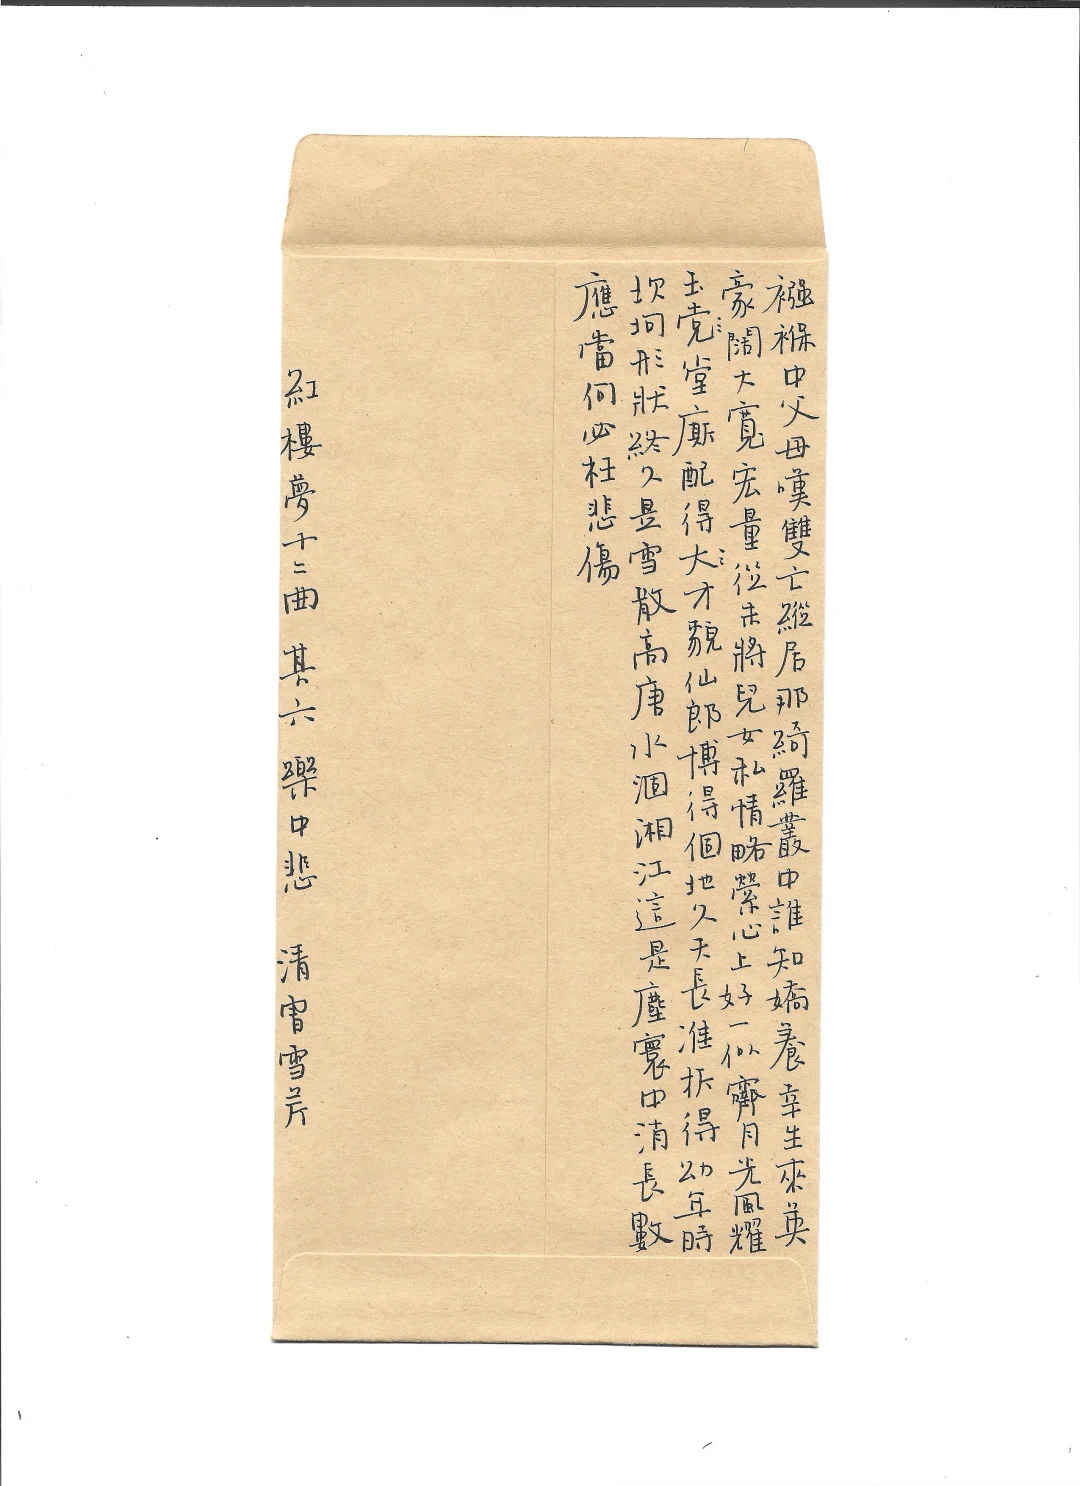 襁褓中父母嘆雙亡縱居那綺羅叢中誰知嬌養幸生來英
豪闊大寬宏量從未將兒女私情略縈心上好一似霽月光風耀
玉堂廝配得才貌仙郎博得個地久天長准折得幼年時
坎坷形狀終久是雪散高唐水涸湘江這是塵寰中消長數
應當何必枉悲傷
紅樓夢十二曲 其六 樂中悲 清 曹雪芹